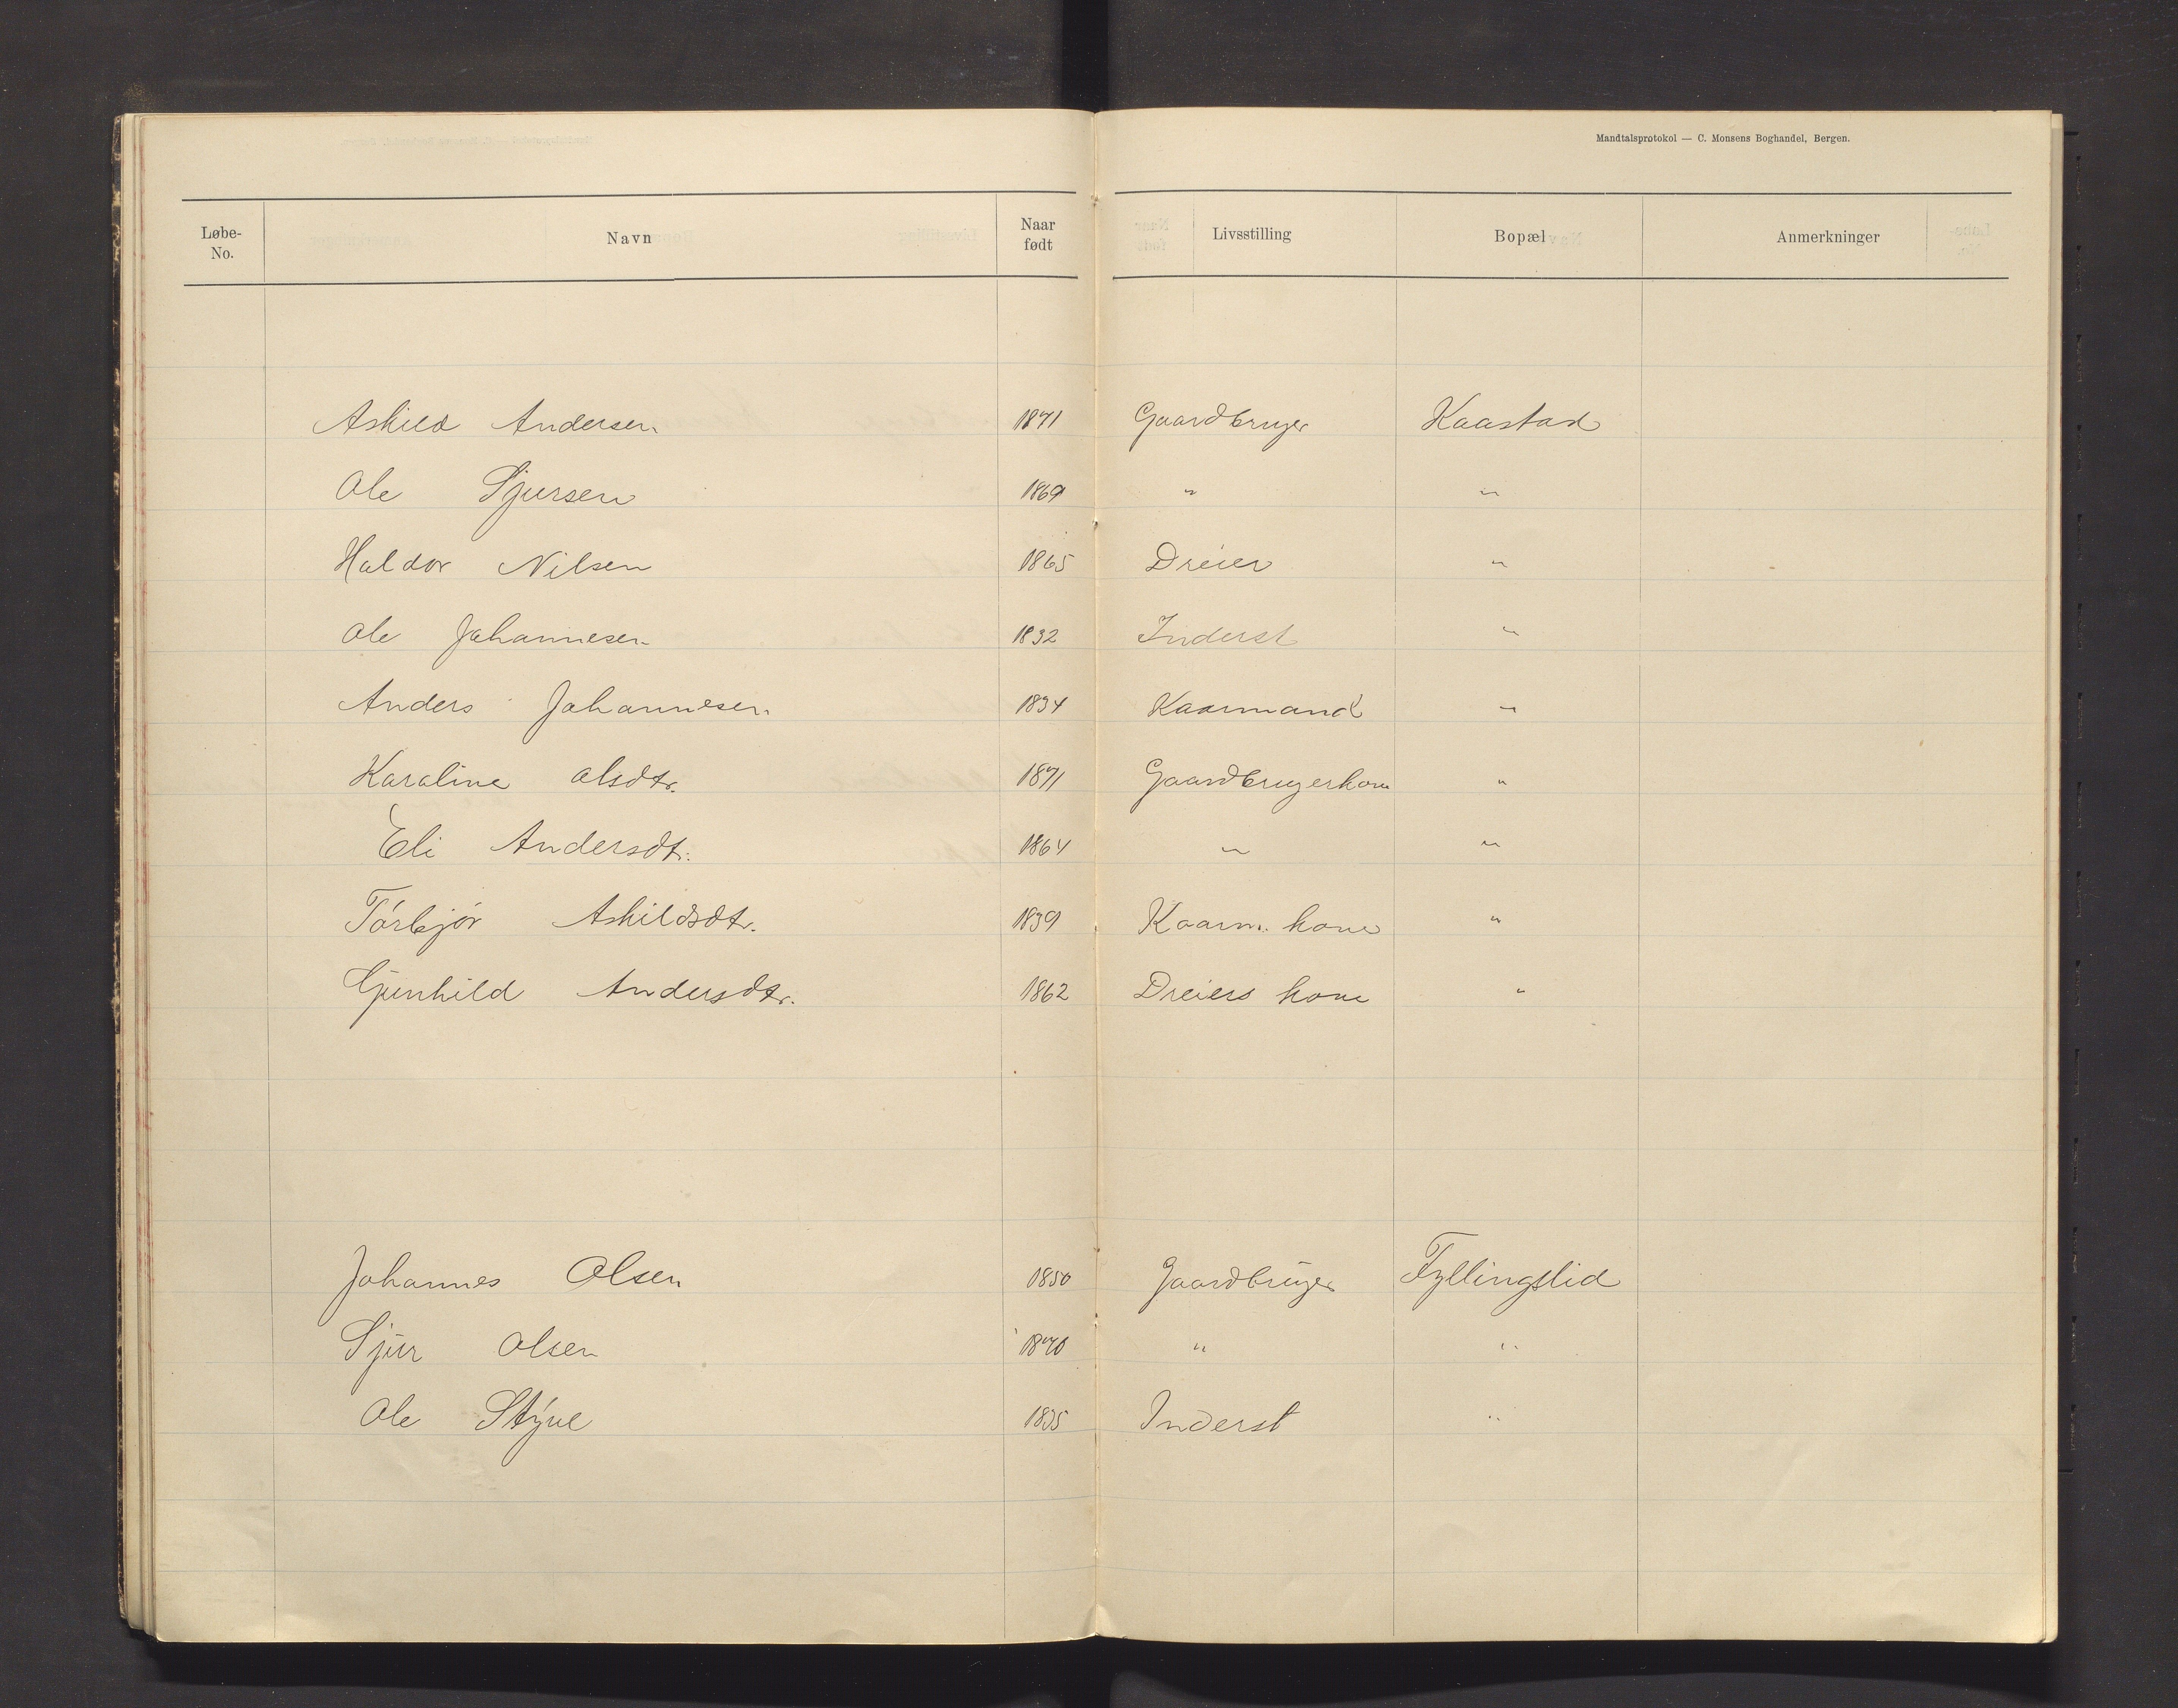 Mandtalsprotokol — C. Monsens Boghandel, Bergen.
Løbe-No. Navn Naar født Livsstilling Bopæl Anmerkninger
Askild Andersen 1871 Gaardbruger Kaastad
Ole Sjursen 1869 " "
Haldor Nilsen 1865 Dreier "
Ole Johannesen 1832 Inderst "
Anders Johannesen 1834 Kaarmand "
Karoline Olsdtr. 1871 Gaardbrugerkone "
Eli Andersdtr. 1864 " "
Torbjør Askildsdtr. 1839 Kaarm. kone "
Gunhild Andersdtr. 1862 Dreiers kone "
Johannes Olsen 1850 Gaardbruger Fyllingslid
Sjur Olsen 1870 " "
Ole Styve 1835 Inderst "